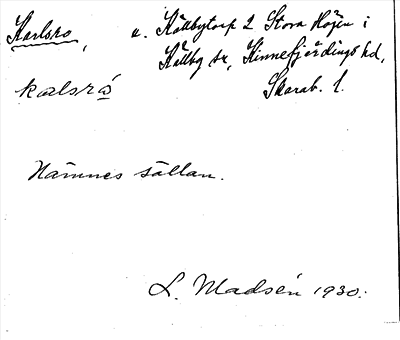 Karlsro, u. Källbytorp 2 Stora Höjen i
Källby sn, Kinnefjärdings hd,
kalsrå Skarab. l.
Nämnes sällan.
L. Madsén 1930.